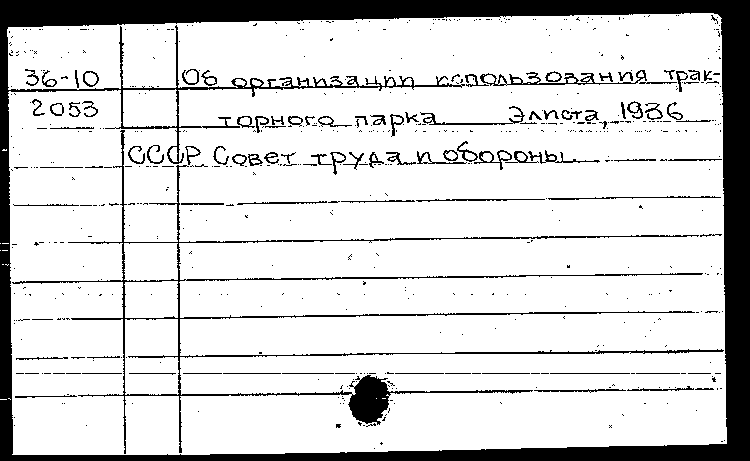 36-10 Об организации использования трак-
2053 торного парка. Элиста, 1936
СССР. Совет труда и обороны.